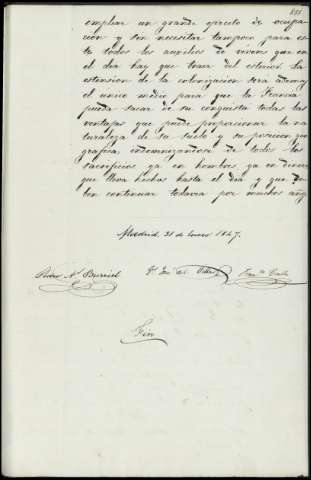 emplear un grande ejercito de ocupa
cion y sin necesitar tampoco para es
te todos los auxilios de viveres que en
el dia hay que traer del esterior. La
estension de la colonizacion será ademas
el unico medio para que la Francia
pueda sacar de su conquista todas las
ventajas que puede proporcionar la na
turaleza de su suelo y su posicion geo
grafica, indemnizandose de todos los
sacrificios ya en hombres ya en dinero
que lleva hechos hasta el dia y que de
ben continuar todavia por muchos años
Madrid, 31 de Enero 1847.
Pedro A. Burriel
Fin